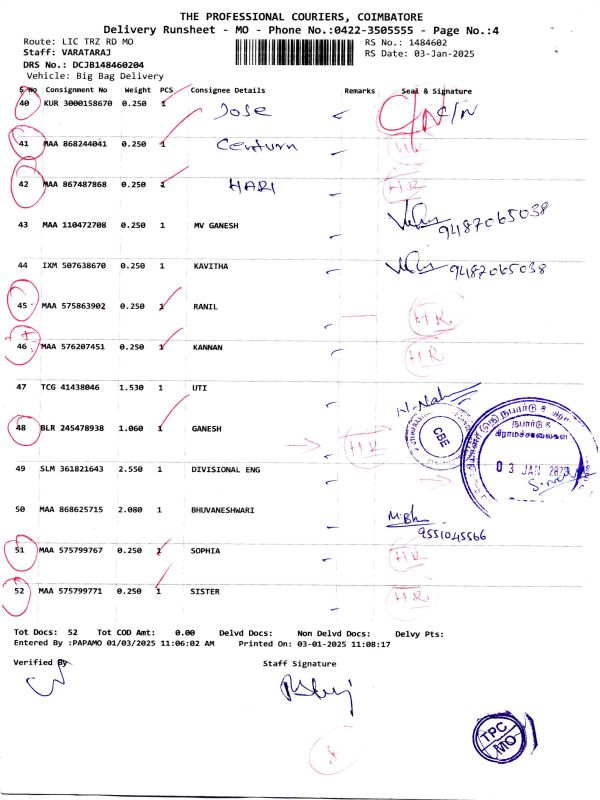 THE PROFESSIONAL COURIERS, COIMBATORE
Delivery Runsheet - MO - Phone No.:0422-3505555 - Page No.:4
Route: LIC TRZ RD MO RS No.: 1484602
Staff: VARATARAJ RS Date: 03-Jan-2025
DRS No.: DCJB148460204
Vehicle: Big Bag Delivery
S No Consignment No Weight PCS Consignee Details Remarks Seal & Signature
40 KUR 3000158670 0.250 1 Jose C/N C/N
41 MAA 868244041 0.250 1 HR
42 MAA 867487868 0.250 1 HARI HR
43 MAA 110472708 0.250 1 MV GANESH 9487065038
44 IXM 507638670 0.250 1 KAVITHA 9487065038
45 MAA 575863902 0.250 1 RANIL HR
46 MAA 576207451 0.250 1 KANNAN HR
47 TCG 41438046 1.530 1 UTI
CBE
நபார்டு &
கிராமச்சாலைகள்
03 JAN 2025
48 BLR 245478938 1.060 1 GANESH HR
49 SLM 361821643 2.550 1 DIVISIONAL ENG
50 MAA 868625715 2.080 1 BHUVANESHWARI 9551045566
51 MAA 575799767 0.250 1 SOPHIA HR
52 MAA 575799771 0.250 1 SISTER HR
Tot Docs: 52 Tot COD Amt: 0.00 Delvd Docs: Non Delvd Docs: Delvy Pts:
Entered By :PAPAMO 01/03/2025 11:06:02 AM Printed On: 03-01-2025 11:08:17
Verified By Staff Signature
TPC
MO